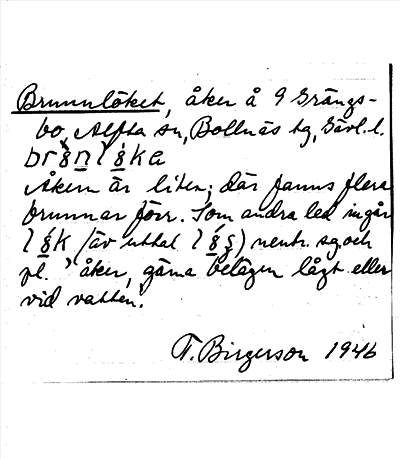 Brunnlöket, åker å 9 Grängs-
bo, Alfta sn, Bollnäs tg, Gävl. l.
Åkern är liten; där fanns flera
brunnar förr. Som andra led ingår
(äv uttal) neutr. sg. och
pl. 'åker, gärna belägen lågt eller
vid vatten.
F. Birgerson 1946